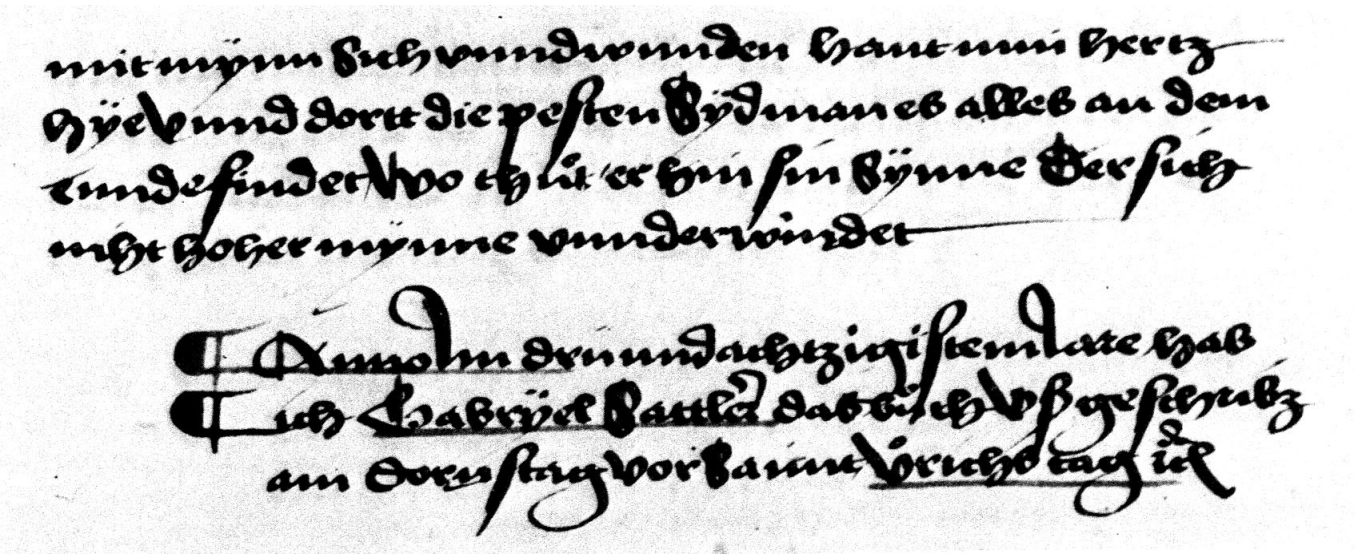 mit mynn Sich vnnd wunden hant min hertz
hÿe Vnnd dortt die pesten Sÿd man es alles an dem
ennde findet Wo thůt er hin sin Sÿnne Der sich
niht hoher mynne vnnderwindet
¶ Anno Im drú vnnd achtzigistem Iare hab
¶ ich Gabrÿel Sattler das bůch vß geschribz
am Dornstag vor Sannt Vͦlrichs tag